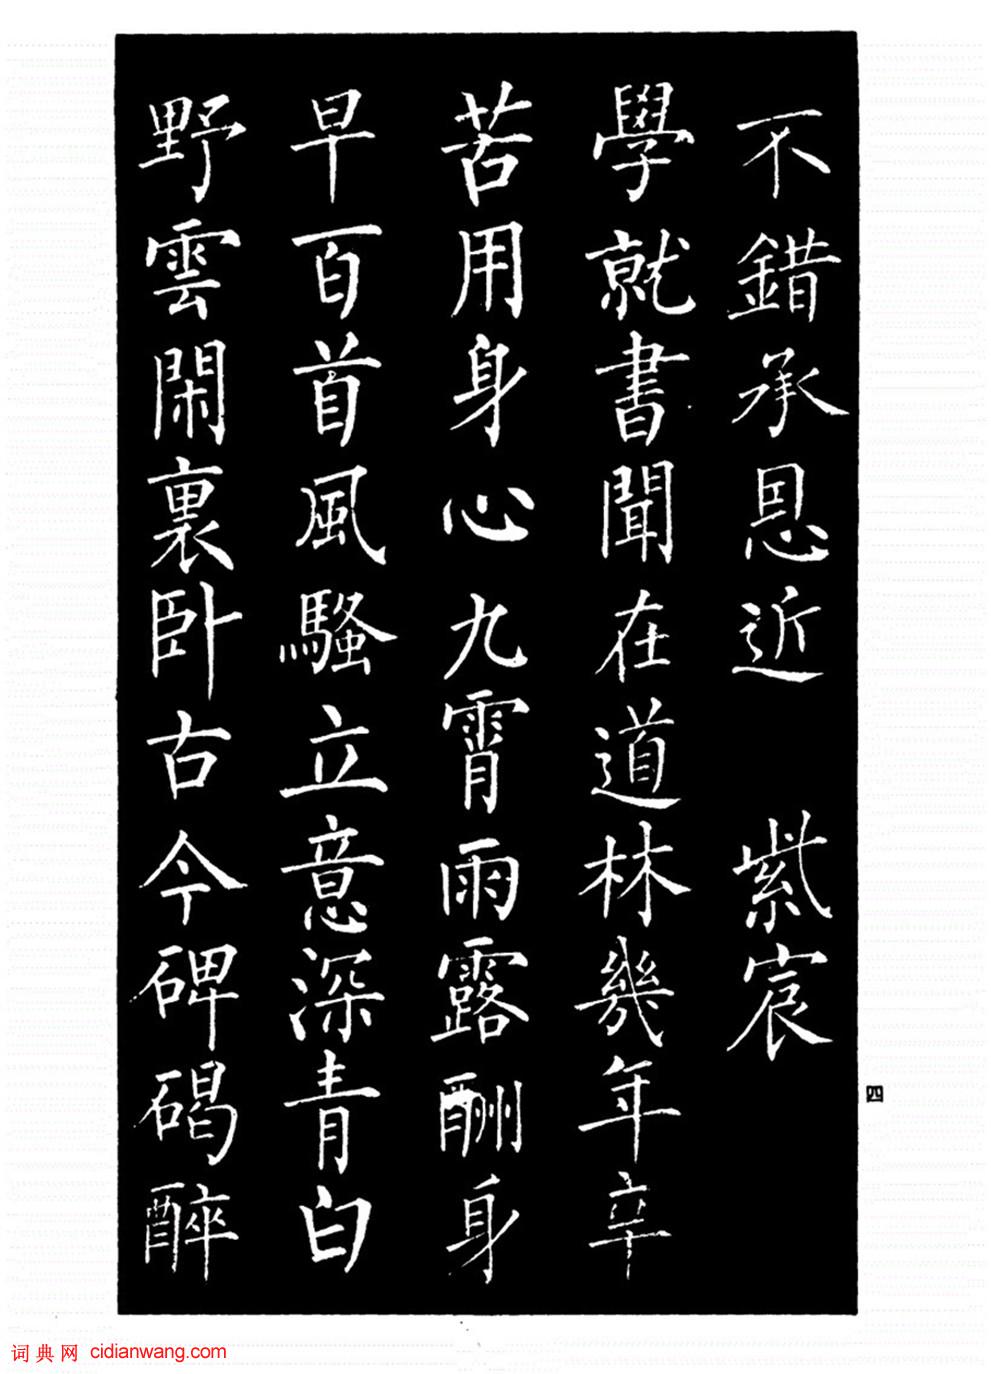 不錯承恩近 紫宸
學就書聞在道林幾年辛
苦用身心九霄雨露酬身
早百首風騷立意深青白
野雲閑裏卧古今碑碣醉
四
词典网 cidianwang.com